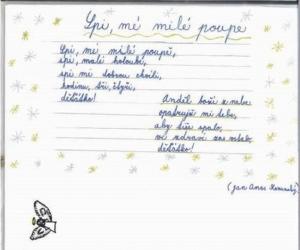 Spi, mé milé poupě
Spi, mé milé poupě,
spi, malé holoubě,
spi mi dobrou chvíli,
hodinu, dvě, čtyři,
děťátko!
Anděl boží z nebe
opatruje mi tebe,
aby tiše spalo,
ve zdraví zas vstalo,
děťátko!
(Jan Amos Komenský)